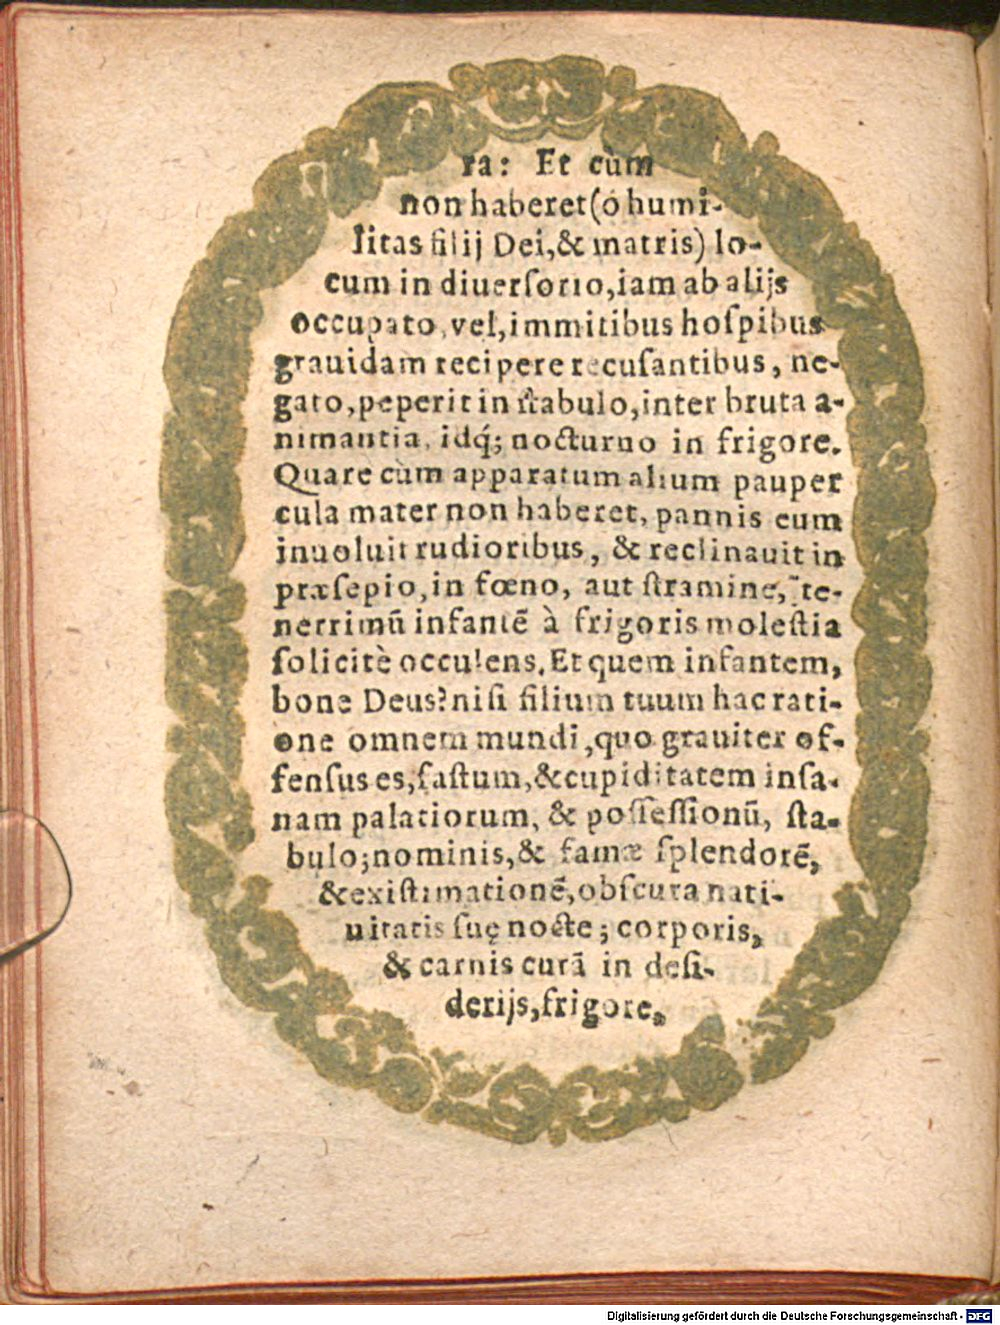 ra: Et cùm
non haberet (ô humi-
litas filij Dei, & matris) lo-
cum in diuerſorio, iam ab alijs
occupato, vel, immitibus hoſpibus
grauidam recipere recuſantibus, ne-
gato, peperit in ſtabulo, inter bruta a-
nimantia, idq́; nocturno in frigore.
Quare cùm apparatum alium pauper
cula mater non haberet, pannis eum
inuoluit rudioribus, & reclinauit in
præſepio, in fœno, aut ſtramine, te-
nerrimũ infantẽ à frigoris moleſtia
ſolicitè occulens. Et quem infantem,
bone Deus? niſi filium tuum hac rati-
one omnem mundi, quo grauiter of-
fenſus es, faſtum, & cupiditatem inſa-
nam palatiorum, & poſſeſſionũ, ſta-
bulo; nominis, & famæ ſplendorẽ,
& exiſtimationẽ, obſcura nati-
uitatis ſuę nocte; corporis,
& carnis curã in deſi-
derijs, frigore,
Digitalisierung gefördert durch die Deutsche Forschungsgemeinschaft - DFG